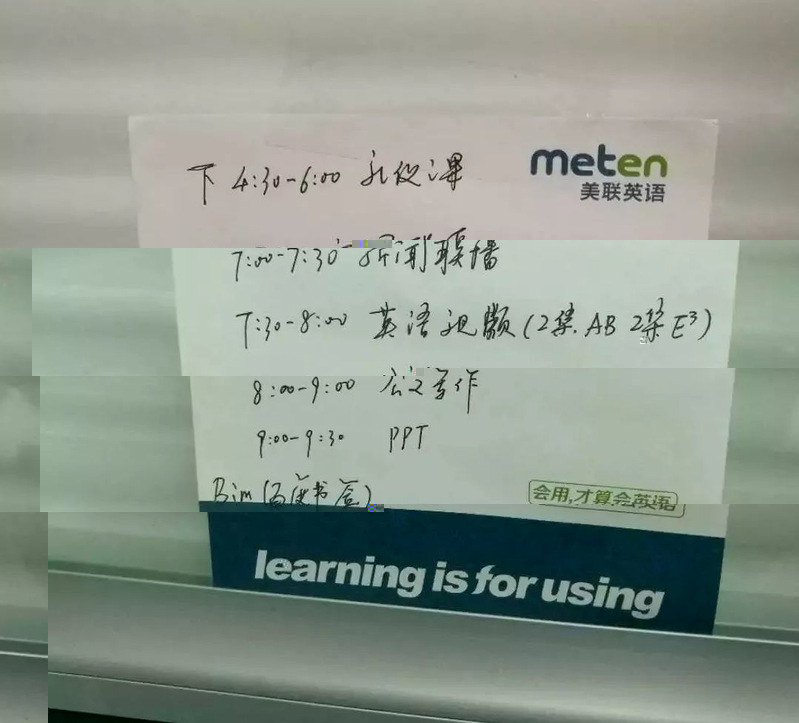 meten
美联英语
下 4:30-6:00 礼仪课
7:00-7:30 新闻联播
7:30-8:00 英语视频(2集.AB 2集E³)
8:00-9:00 公文写作
9:00-9:30 PPT
Bim(百度书
会用,才算会英语
learning is for using